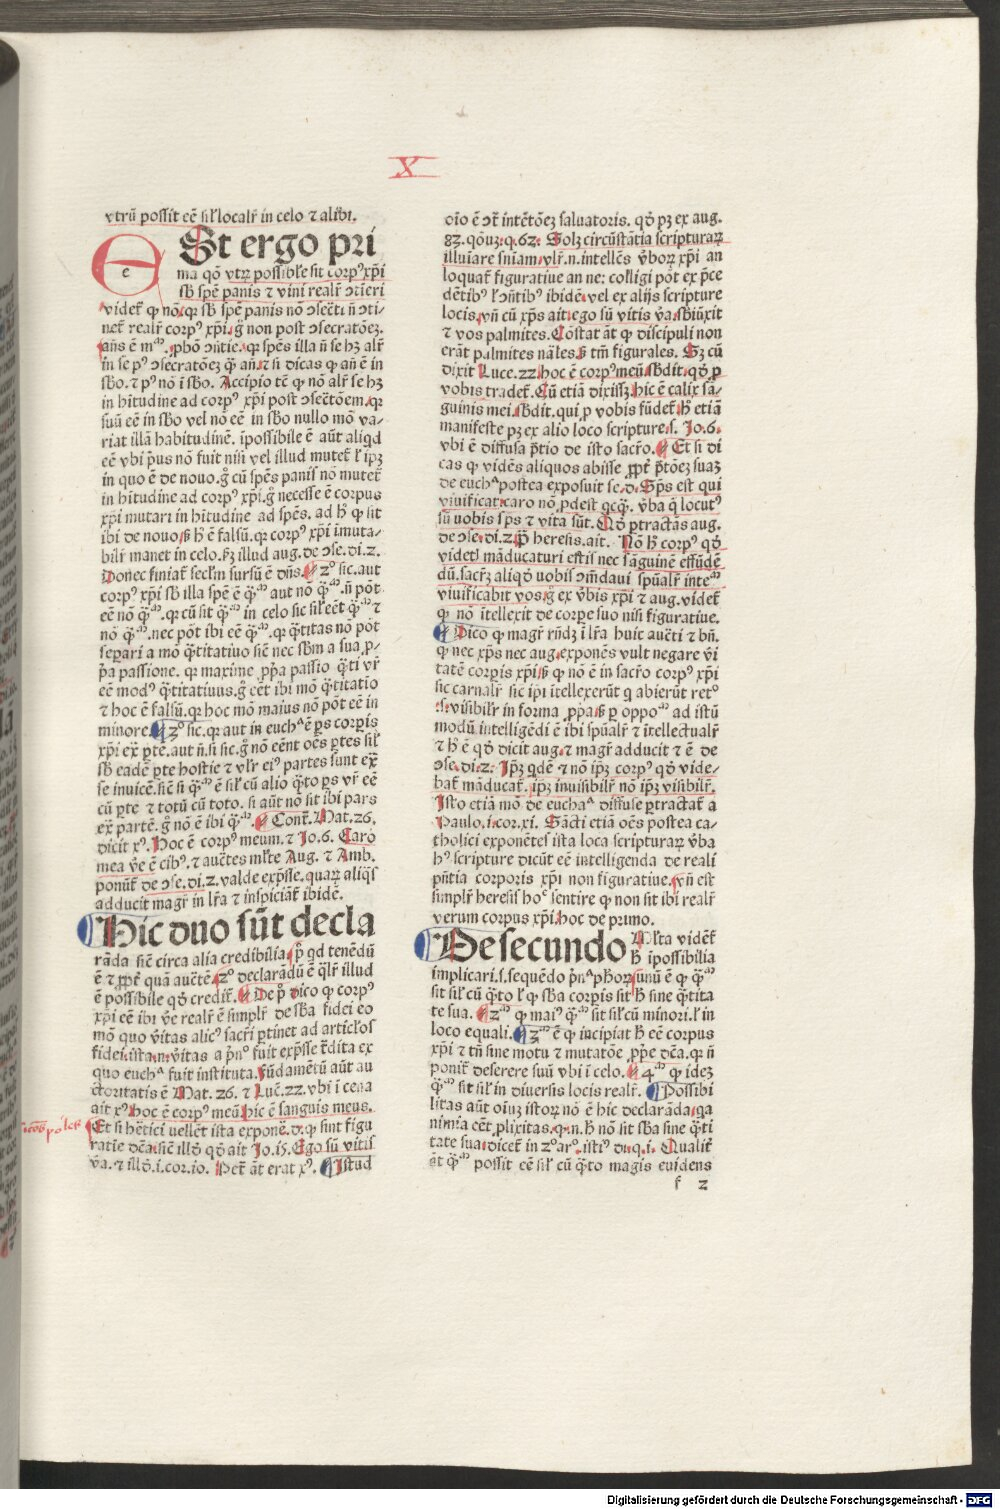 X
vtrū possit eē sil' localr̄ in celo ⁊ alibi.
e
Est ergo pri
ma qō vtrꝫ possibile sit corpꝰ xp̄i
sb̄ spē panis ⁊ vini realr̄ ↄtieri
videt̄ ꝙ nō. qꝛ sb̄ spē panis nō ↄsec̄ti n̄ ↄti-
net̄ realr̄ corpꝰ xp̄i. ḡ non post ↄsecratōeꝫ.
in se pꝰ ↄsecratōeꝫ
sb̄o. ⁊ pꝰ nō ī sb̄o. Accipio tē ꝙ nō alr̄ se hꝫ
in hītudine ad corpꝰ xp̄i post
suū eē in sb̄o vel nō eē in sb̄o nullo mō va-
riat illā habitudinē. īpossibile ē aūt aliqd
eē vbi p̄us nō fuit nisi vel illud mutet̄ l' ip̄ꝫ
in quo ē de nouo. ḡ cū spēs panis nō mutet̄
in hītudine ad corpꝰ xp̄i. ḡ necesse ē corpus
xp̄i mutari in hītudine ad spēs. ad hꝰ ꝙ sit
ibi de nouo. sꝫ hꝰ ē falsū. qꝛ corpꝰ xp̄i īmuta-
bilr̄ manet in celo. sꝫ illud aug. de ↄse. di. 2.
Donec finiat̄ secl'm sursū ē dn̄s. 2º sic. aut
corpꝰ xp̄i sb̄ illa spē ē q̄ᵐ aut nō q̄ᵐ. n̄ pōt
eē nō q̄ᵐ. qꝛ cū sit q̄ᵐ in celo sic sil' eēt q̄ᵐ ⁊
nō q̄ᵐ. nec pōt ibi eē q̄ᵐ. qꝛ q̄titas nō pōt
separi a mō q̄titatiuo sic̄ nec sb̄m a sua ꝓ-
p̄a passione. qꝛ maxime ꝓp̄a passio q̄ti vr̄
eē modꝰ q̄titatiuus. ḡ eēt ibi mō q̄titatio
⁊ hoc ē falsū. qꝛ hoc mō maius nō pōt eē in
minore. 2º sic. qꝛ aut in euchᵃ ē ꝑs corꝑis
xp̄i ex ꝑte. aut n̄. si sic. ḡ nō eēnt oēs ꝑtes sil'
sb̄ eadē ꝑte hostie ⁊ vlr̄ eiꝰ partes sunt ex̄
se inuicē. sic̄ si q̄ᵐ ē sil' cū alio q̄to ꝑs vr̄ eē
cū ꝑte ⁊ totū cū toto. si aūt nō sit ibi pars
ex̄ partē. ḡ nō ē ibi q̄ᵐ. Cont̄. Mat. 26.
dicit xꝰ. Hoc ē corpꝰ meum. ⁊ Jo. 6. Caro
mea v̄e ē cibꝰ. ⁊ auc̄tes ml'te Aug. ⁊ Amb.
ponūt̄ de ↄse. di. 2. valde exp̄sse. quaꝝ aliq̄s
adducit magr̄ in lr̄a ⁊ inspiciāt̄ ibidē.
Hic duo sūt decla
rāda sic̄ circa alia credibilia. p̄ qd tenēdū
ē ⁊ ꝓpt̄ quā auc̄tē. 2º declarādū ē q̄lr̄ illud
ē possibile qd̄ credit̄. De p̄ dico ꝙ corpꝰ
xp̄i eē ibi v̄e realr̄ ē simplr̄ de sb̄a fidei eo
mō quo v̄itas alicꝰ sacri ꝑtinet ad articl'os
fidei. ista. n. v̄itas a p̄nº fuit exp̄sse t̄dita ex
quo euchᵃ fuit instituta. Fūdamētū aūt au
ctoritatis ē Mat. 26. ⁊ Luc̄. 22. vbi ī cena
ait xꝰ. hoc ē corpꝰ meū. hic ē sanguis meus.
Et si hētici vellēt ista exponē. d. ꝙ sunt figu
ratie dc̄a. sic̄ illō qd̄ ait Jo. 15. Ego sū vitis
v̄a. ⁊ illō. i. cor. 10. Pet̄ āt erat xꝰ. Istud
oīo ē ↄt̄ intētōeꝫ saluatoris. qd̄ pꝫ ex aug.
83. qōuꝫ. q. 62. Solꝫ circūstātia scripturaꝝ
illuīare sniam. vlr̄. n. intellēs v̄boꝝ xp̄i an
loquat̄ figuratiue an ne: colligi pōt ex p̄ce
dētibꝰ l' ↄn̄tibꝰ ibidē. vel ex alijs scripture
locis. vn̄ cū xp̄s ait. ego sū vitis v̄a. sb̄iūxit
⁊ vos palmites. Cōstat āt ꝙ discipuli non
erāt palmites nāles. sꝫ tm̄ figurales. Sꝫ cū
dixit Luce. 22. hoc ē corpꝰ meū. sb̄dit. qd̄ ꝓ
vobis tradet̄. Cū etiā dixissꝫ. hic ē calix sā-
guinis mei. sb̄dit. qui ꝓ vobis fūdet̄. hꝰ etiā
manifeste pꝫ ex alio loco scripture. s. Jo. 6.
vbi ē diffusa p̄tio de isto sacr̄o. Et si di
cas ꝙ vidēs aliquos abisse ꝓpt̄ p̄tōeꝫ suaꝫ
de euchᵃ postea exposuit se. d. Sp̄s est qui
viuificat. caro nō ꝓdest qcq̄. v̄ba q̄ locutꝰ
sū uobis sp̄s ⁊ vita sūt. Qd̄ ꝑtractās aug.
de ↄse. di. 2. p̄ heresis. ait. Nō hꝰ corpꝰ qd̄
videtl māducaturi estis nec sāguinē effūdē
dū. sacr̄ꝫ aliqd̄ uobis ↄmdaui spūalr̄ inteᵐ
viuificabit vos. ḡ ex v̄bis xp̄i ⁊ aug. videt̄
ꝙ nō ītellexit de corpe suo nisi figuratiue.
Dico ꝙ magr̄ rn̄dꝫ ī lr̄a huic auc̄ti ⁊ bn̄.
ꝙ nec xp̄s nec aug. exponēs vult negare v̄i
tatē corꝑis xp̄i. sꝫ ꝙ nō ē in sacr̄o corpꝰ xp̄i
sic carnalr̄ sic ip̄i ītellexerūt q abierūt retº
.s. visibilr̄ in forma ꝓp̄a. sꝫ ꝑ oppoᵐ ad istū
modū intelligēdi ē ibi spūalr̄ ⁊ ītellectualr̄
⁊ hꝰ ē qd̄ dicit aug. ⁊ magr̄ adducit ⁊ ē de
ↄse. di. 2. Ip̄ꝫ qdē ⁊ nō ip̄ꝫ corpꝰ qd̄ vide-
bat̄ māducat̄. ip̄ꝫ inuisibilr̄ nō ip̄ꝫ visibilr̄.
Isto etiā mō de euchaᵃ diffuse ꝑtractat̄ a
Paulo. i. cor. xi. Sāc̄ti etiā oēs postea ca-
tholici exponētes ista loca scripturaꝝ v̄ba
hꝰ scripture dicūt eē intelligenda de reali
pn̄tia corporis xp̄i non figuratiue. vn̄ est
simplr̄ heresis hoᶜ sentire ꝙ non sit ibi realr̄
verum corpus xp̄i. hoc de primo.
De secundo Ml'ta vident̄
hꝰ īpossibilia
implicari. s. sequēdo
sit sil' cū q̄to l' ꝙ sb̄a corꝑis sit hꝰ sine q̄tita
te sua. 2ᵐ ꝙ maiꝰ q̄ᵐ sit sil' cū minori. l' in
loco equali. 3ᵐ ē ꝙ incipiat hꝰ eē corpus
xp̄i ⁊ tn̄ sine motu ⁊ mutatōe ꝓp̄e dc̄a. qꝛ n̄
ponit̄ deserere suū vbi ī celo. 4ᵐ ꝙ ideꝫ
q̄ᵐ sit sil' in diuersis locis realr̄. Possibi
litas aūt oīuꝫ istoꝝ nō ē hic declarāda. qa
nimia eēt ꝓlixitas. ꝙ. n. hꝰ nō sit sb̄a sine q̄ti
tate sua. dicet̄ in 2º arº. istiꝰ di. q. i. Qualit̄
āt q̄ᵐ possit eē sil' cū q̄to magis euidens
f 2
Digitalisierung gefördert durch die Deutsche Forschungsgemeinschaft - DFG